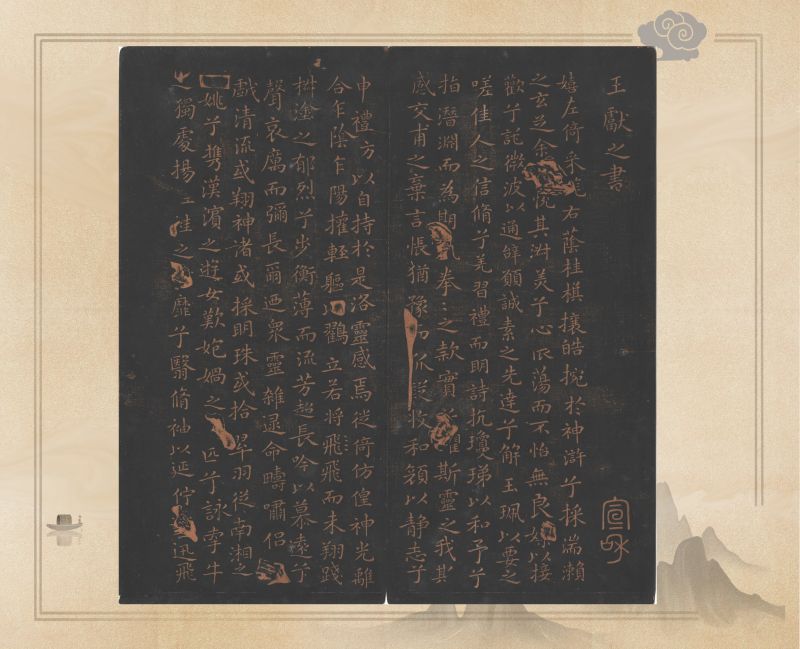 王獻之書
宣和
嬉左倚采旄右蔭桂旗攘皓捥於神滸兮採湍瀨
之玄芝余悅其淑美兮心振蕩而不怡無良以接
歡兮託微波以通辭願誠素之先達兮解玉珮以要之
嗟佳人之信脩兮羌習禮而明詩抗瓊珶以和予兮
指潛淵而為期拳〻之款實懼斯靈之我欺
感交甫之棄言悵猶豫而狐疑收和顏以靜志兮
申禮方以自持於是洛靈感焉徙倚仿偟神光離
合乍陰乍陽擢輕軀以鶴立若將飛飛而未翔踐
椒塗之郁烈兮步衡薄而流芳超長吟以慕遠兮
聲哀厲而彌長爾迺眾靈雜遝命疇嘯侶
戲清流或翔神渚或採明珠或拾翠羽從南湘之
姚兮攜漢濱之遊女歎匏媧之匹兮詠牽牛
之獨處揚袿之靡兮翳脩袖以延佇迅飛